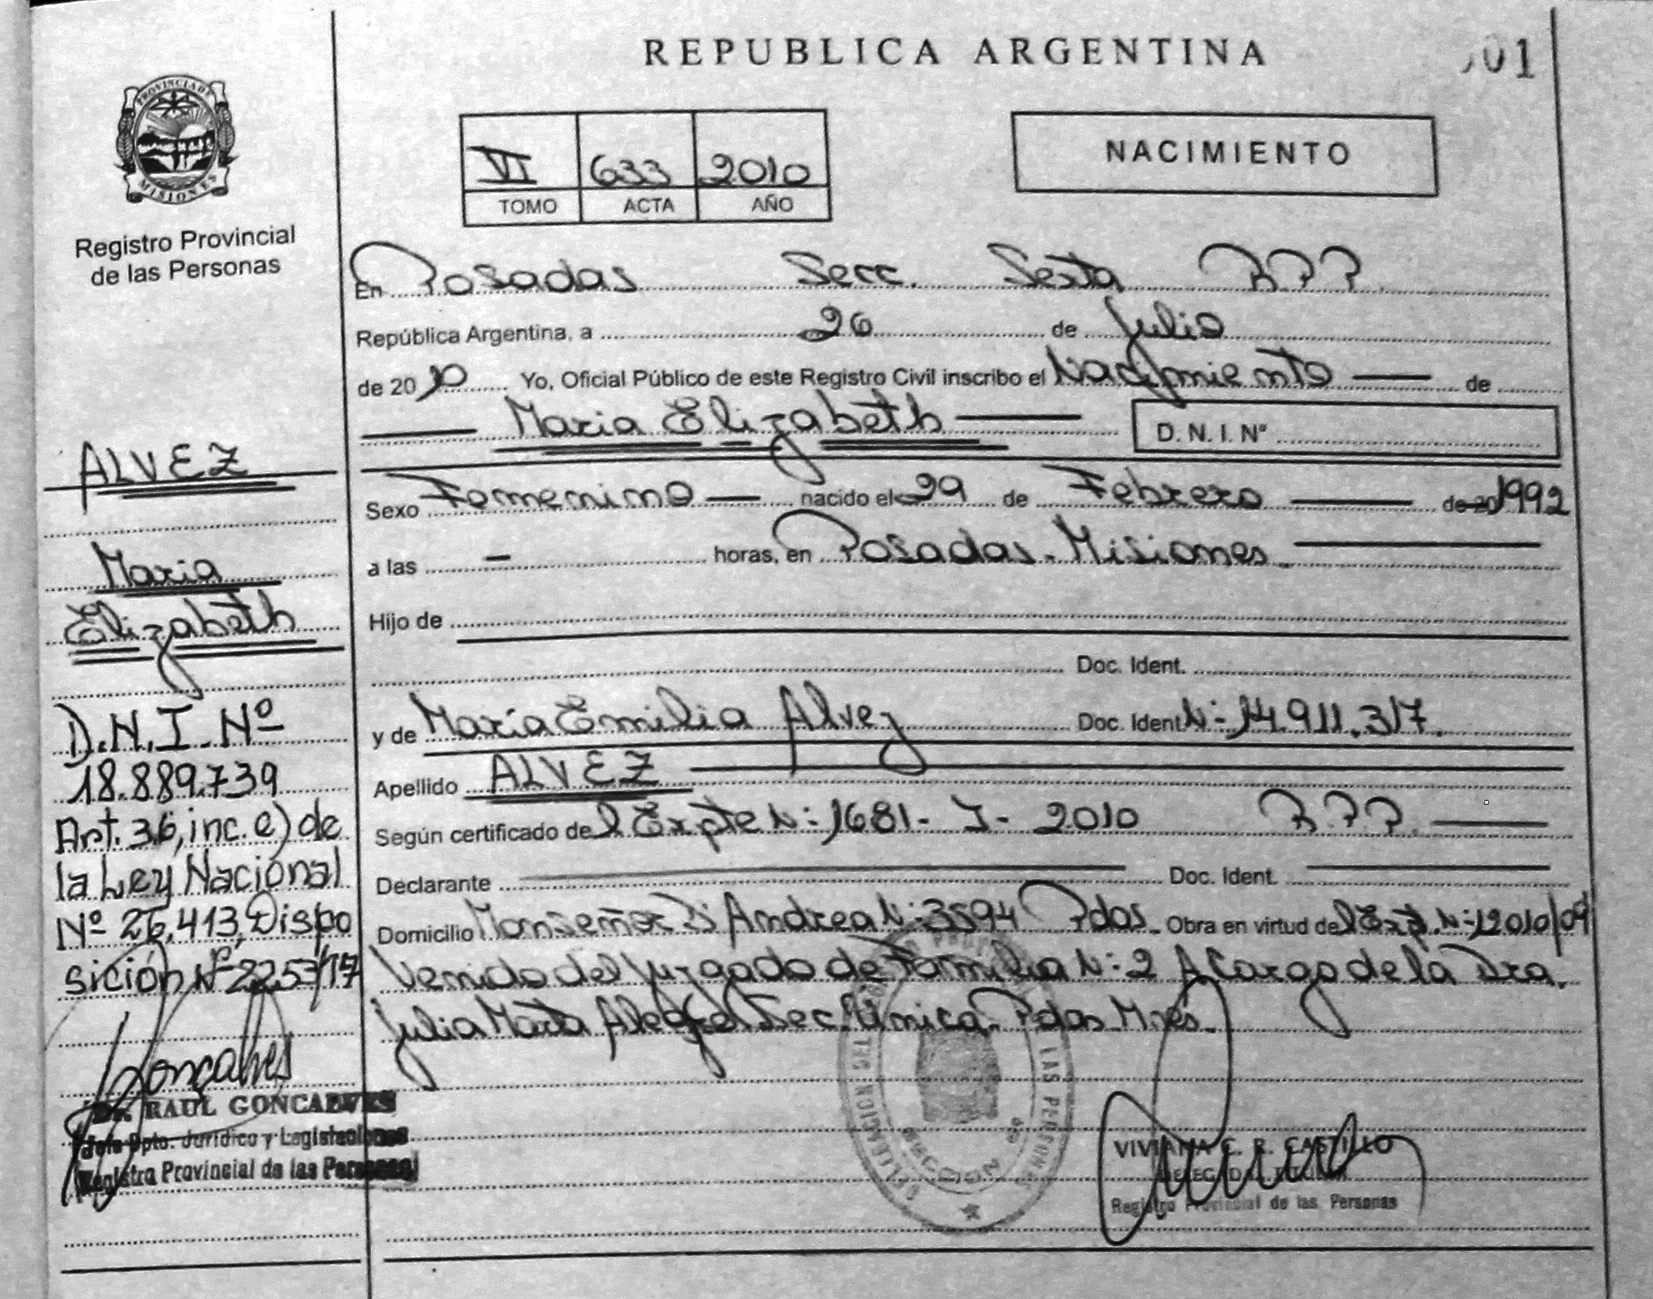 REPUBLICA ARGENTINA
01
PROVINCIA DE
MISIONES
Registro Provincial
de las Personas
VI 633 2010
TOMO ACTA AÑO
NACIMIENTO
En Posadas Secc. Sexta R.P.P.
República Argentina, a 26 de Julio
de 2010 Yo, Oficial Público de este Registro Civil inscribo el Nacimiento de
Maria Elizabeth D. N. I. Nº
Sexo Femenino nacido el 29 de Febrero de 20 1992
a las - horas, en Posadas - Misiones
Hijo de
Doc. Ident.
y de Maria Emilia Alvez Doc. Ident. N: 14.911.317.
Apellido ALVEZ
Según certificado del Expte N: 1681- I- 2010 R.P.P.
Declarante Doc. Ident.
Domicilio Monseñor D'Andrea N: 3594 Pdas. Obra en virtud del Exp. N: 12010/09
Venido del Juzgado de Familia N: 2 A Cargo de la Dra.
Julia Marta Alegre Sec. Unica. Pdas Mnes.
ALVEZ
Maria
Elizabeth
D.N.I. Nº
18.889.739
Art. 36, inc. e) de
la Ley Nacional
Nº 26.413, Dispo
sición Nº 2257/17
Goncalves
Dr. RAUL GONCALVES
Jefe Dpto. Jurídico y Legislaciones
Registro Provincial de las Personas
LAS PERSONAS
SECCION
VIVIANA C. R. CASTILLO
DELEGADA TITULAR
Registro Provincial de las Personas